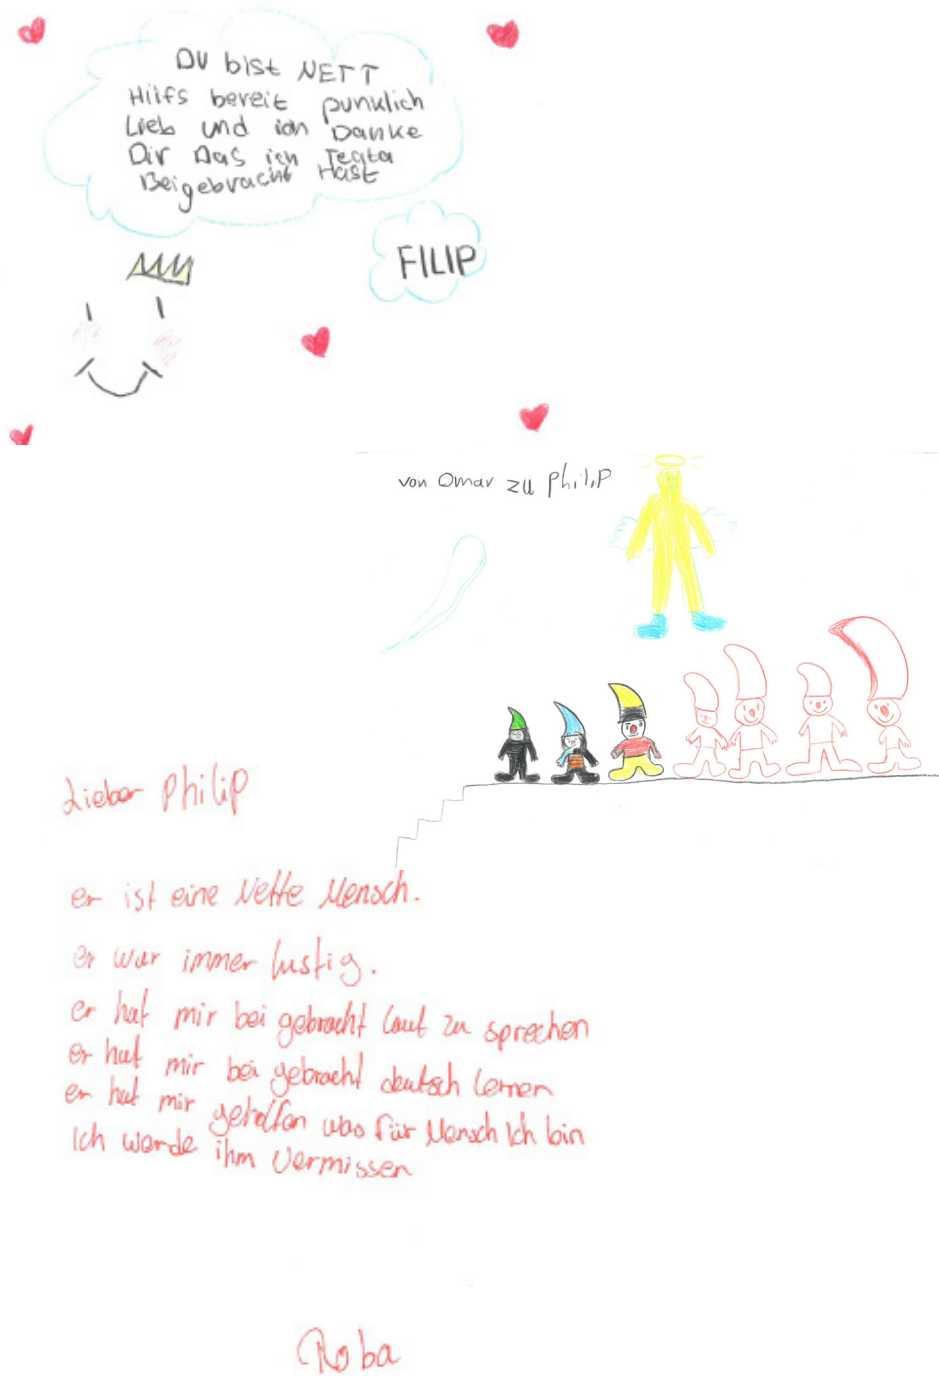 Du bist NETT
Hilfs bereit punklich
Lieb und ich Danke
Dir Das ich Teata
Beigebracht Hast
FILIP
von Omar zu Philip
Lieber Philip
er ist eine Nette Mensch.
er war immer lustig.
er hat mir bei gebracht laut zu sprechen
er hat mir bei gebracht deutsch lernen
er hat mir geholfen was für Mensch Ich bin
Ich werde ihm vermissen
Roba